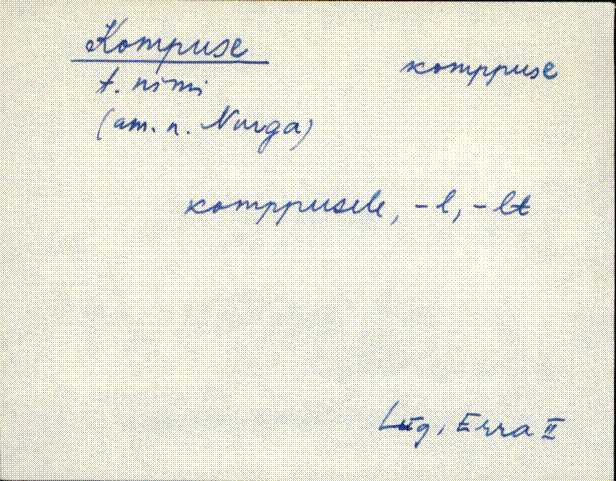 Kompuse
komppuse
t. nimi
(am. n. Nurga)
komppusele, -l, -lt
Lüg, Erra II